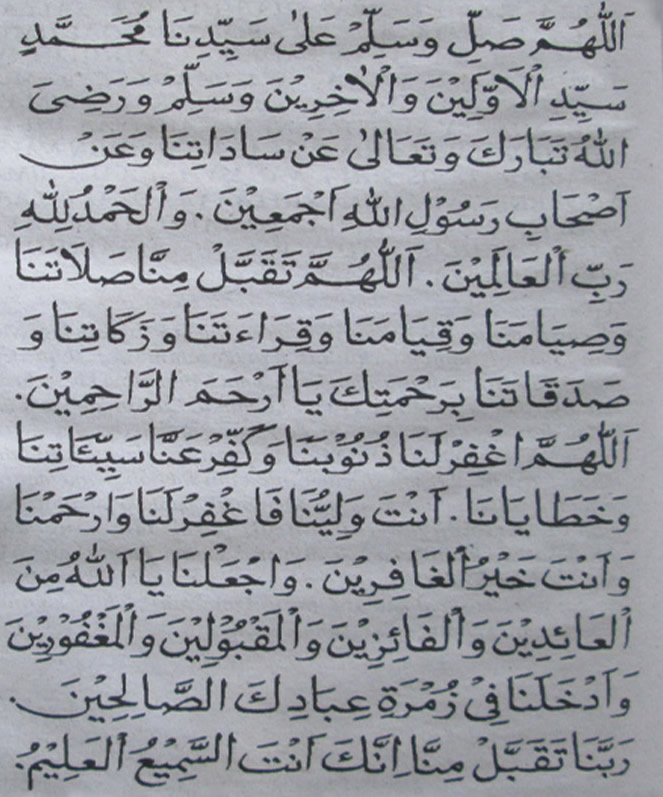 اَللّٰهُمَّ صَلِّ وَسَلِّمْ عَلٰى سَيِّدِنَا مُحَمَّدٍ
سَيِّدِ اْلاَوَّلِيْنَ وَاْلاٰخِرِيْنَ وَسَلِّمْ وَرَضِىَ
اللهُ تَبَارَكَ وَتَعَالىٰ عَنْ سَادَاتِنَا وَعَنْ
اَصْحَابِ رَسُوْلِ اللهِ اَجْمَعِيْنَ. وَاْلحَمْدُ لِلّٰهِ
رَبِّ اْلعَالَمِيْنَ. اَللّٰهُمَّ تَقَبَّلْ مِنَّا صَلَاتَنَا
وَصِيَامَنَا وَقِيَامَنَا وَقِرَاءَتَنَا وَزَكَاتِنَا وَ
صَدَقَاتَنَا بِرَحْمَتِكَ يَا اَرْحَمَ الرَّاحِمِيْنَ.
اَللّٰهُمَّ اغْفِرْلَنَا ذُنُوْبَنَا وَكَفِّرْ عَنَّا سَيِّئَاتِنَا
وَخَطَايَانَا. اَنْتَ وَلِيُّنَا فَاغْفِرْلَنَا وَارْحَمْنَا
وَاَنْتَ خَيْرُ اْلغَافِرِيْنَ. وَاجْعَلْنَا يَا اَللهُ مِنَ
اْلعَائِدِيْنَ وَاْلفَائِزِيْنَ وَاْلمَقْبُوْلِيْنَ وَاْلمَغْفُوْرِيْنَ
وَاَدْخَلَنَا فِيْ زُمْرَةِ عِبَادِكَ الصَّالِحِيْنَ.
رَبَّنَا تَقَبَّلْ مِنَّا اِنَّكَ اَنْتَ السَّمِيْعُ اْلعَلِيْمُ.